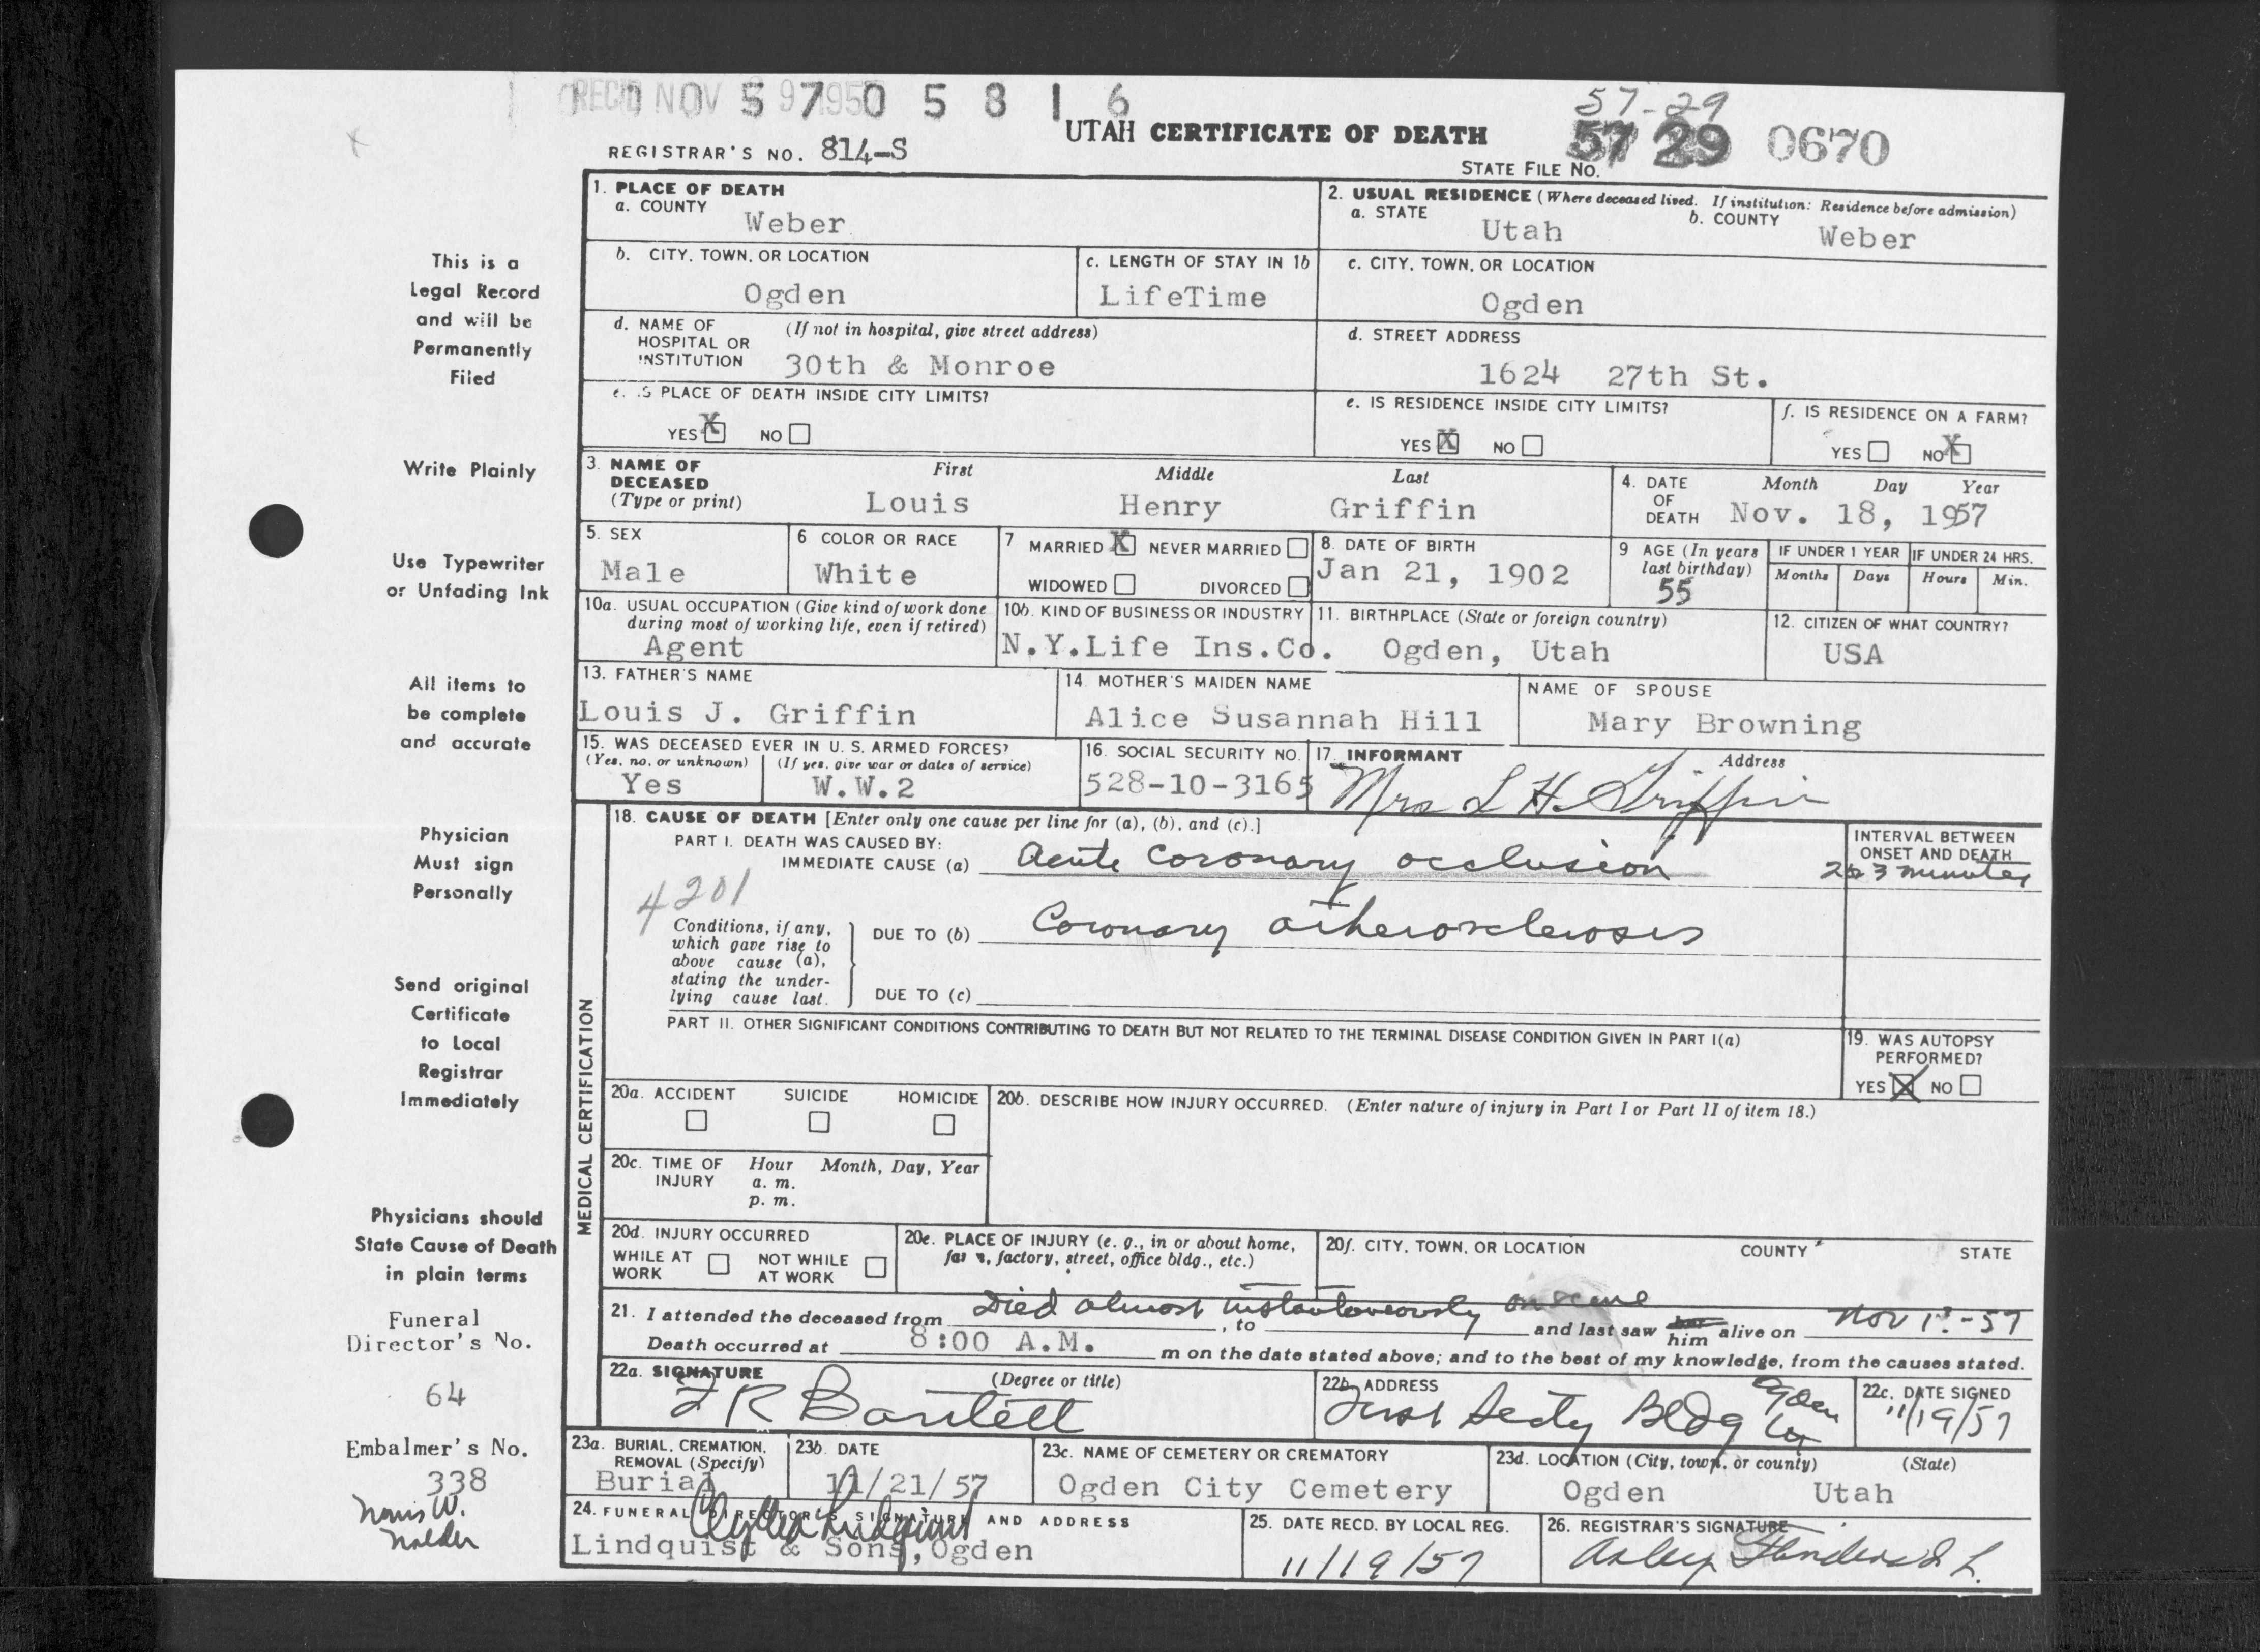 REC'D NOV 1957
5 7 0 5 8 1 6
57-29
UTAH CERTIFICATE OF DEATH
57 29 0670
REGISTRAR'S NO. 814-S
STATE FILE NO.
1. PLACE OF DEATH
a. COUNTY
Weber
2. USUAL RESIDENCE (Where deceased lived. If institution: Residence before admission)
a. STATE b. COUNTY
Utah Weber
b. CITY, TOWN, OR LOCATION
Ogden
c. LENGTH OF STAY IN 1b
LifeTime
c. CITY, TOWN, OR LOCATION
Ogden
d. NAME OF (If not in hospital, give street address)
HOSPITAL OR
INSTITUTION 30th & Monroe
d. STREET ADDRESS
1624 27th St.
e. IS PLACE OF DEATH INSIDE CITY LIMITS?
YES X NO
e. IS RESIDENCE INSIDE CITY LIMITS?
YES X NO
f. IS RESIDENCE ON A FARM?
YES NO X
3. NAME OF DECEASED (Type or print)
First Middle Last
Louis Henry Griffin
4. DATE OF DEATH
Month Day Year
Nov. 18, 1957
5. SEX
Male
6 COLOR OR RACE
White
7 MARRIED X NEVER MARRIED
WIDOWED DIVORCED
8. DATE OF BIRTH
Jan 21, 1902
9 AGE (In years
last birthday)
55
IF UNDER 1 YEAR
Months Days
IF UNDER 24 HRS.
Hours Min.
10a. USUAL OCCUPATION (Give kind of work done
during most of working life, even if retired)
Agent
10b. KIND OF BUSINESS OR INDUSTRY
N.Y.Life Ins.Co.
11. BIRTHPLACE (State or foreign country)
Ogden, Utah
12. CITIZEN OF WHAT COUNTRY?
USA
13. FATHER'S NAME
Louis J. Griffin
14. MOTHER'S MAIDEN NAME
Alice Susannah Hill
NAME OF SPOUSE
Mary Browning
15. WAS DECEASED EVER IN U. S. ARMED FORCES?
(Yes, no, or unknown) (If yes, give war or dates of service)
Yes W.W.2
16. SOCIAL SECURITY NO.
528-10-3165
17. INFORMANT Address
Mrs L H. Griffin
18. CAUSE OF DEATH [Enter only one cause per line for (a), (b), and (c).]
PART I. DEATH WAS CAUSED BY:
IMMEDIATE CAUSE (a) Acute coronary occlusion
INTERVAL BETWEEN
ONSET AND DEATH
2 to 3 minutes
4201
Conditions, if any,
which gave rise to
above cause (a),
stating the under-
lying cause last.
DUE TO (b) Coronary atherosclerosis
DUE TO (c)
PART II. OTHER SIGNIFICANT CONDITIONS CONTRIBUTING TO DEATH BUT NOT RELATED TO THE TERMINAL DISEASE CONDITION GIVEN IN PART I(a)
19. WAS AUTOPSY
PERFORMED?
YES X NO
MEDICAL CERTIFICATION
20a. ACCIDENT SUICIDE HOMICIDE
20b. DESCRIBE HOW INJURY OCCURRED. (Enter nature of injury in Part I or Part II of item 18.)
20c. TIME OF INJURY
Hour Month, Day, Year
a. m.
p. m.
20d. INJURY OCCURRED
WHILE AT WORK NOT WHILE AT WORK
20e. PLACE OF INJURY (e. g., in or about home,
farm, factory, street, office bldg., etc.)
20f. CITY, TOWN, OR LOCATION COUNTY STATE
21. I attended the deceased from Died almost instantaneously on scene, to and last saw her him alive on Nov 1 -57
Death occurred at 8:00 A.M. m on the date stated above; and to the best of my knowledge, from the causes stated.
22a. SIGNATURE (Degree or title)
F R Bartlett
22b. ADDRESS
First Secty Bldg Ogden
22c. DATE SIGNED
11/19/57
23a. BURIAL, CREMATION,
REMOVAL (Specify)
Burial
23b. DATE
11/21/57
23c. NAME OF CEMETERY OR CREMATORY
Ogden City Cemetery
23d. LOCATION (City, town, or county) (State)
Ogden Utah
24. FUNERAL DIRECTOR'S SIGNATURE AND ADDRESS
Lindquist
Lindquist & Sons, Ogden
25. DATE RECD. BY LOCAL REG.
11/19/57
26. REGISTRAR'S SIGNATURE
This is a
Legal Record
and will be
Permanently
Filed
Write Plainly
Use Typewriter
or Unfading Ink
All items to
be complete
and accurate
Physician
Must sign
Personally
Send original
Certificate
to Local
Registrar
Immediately
Physicians should
State Cause of Death
in plain terms
Funeral
Director's No.
64
Embalmer's No.
338